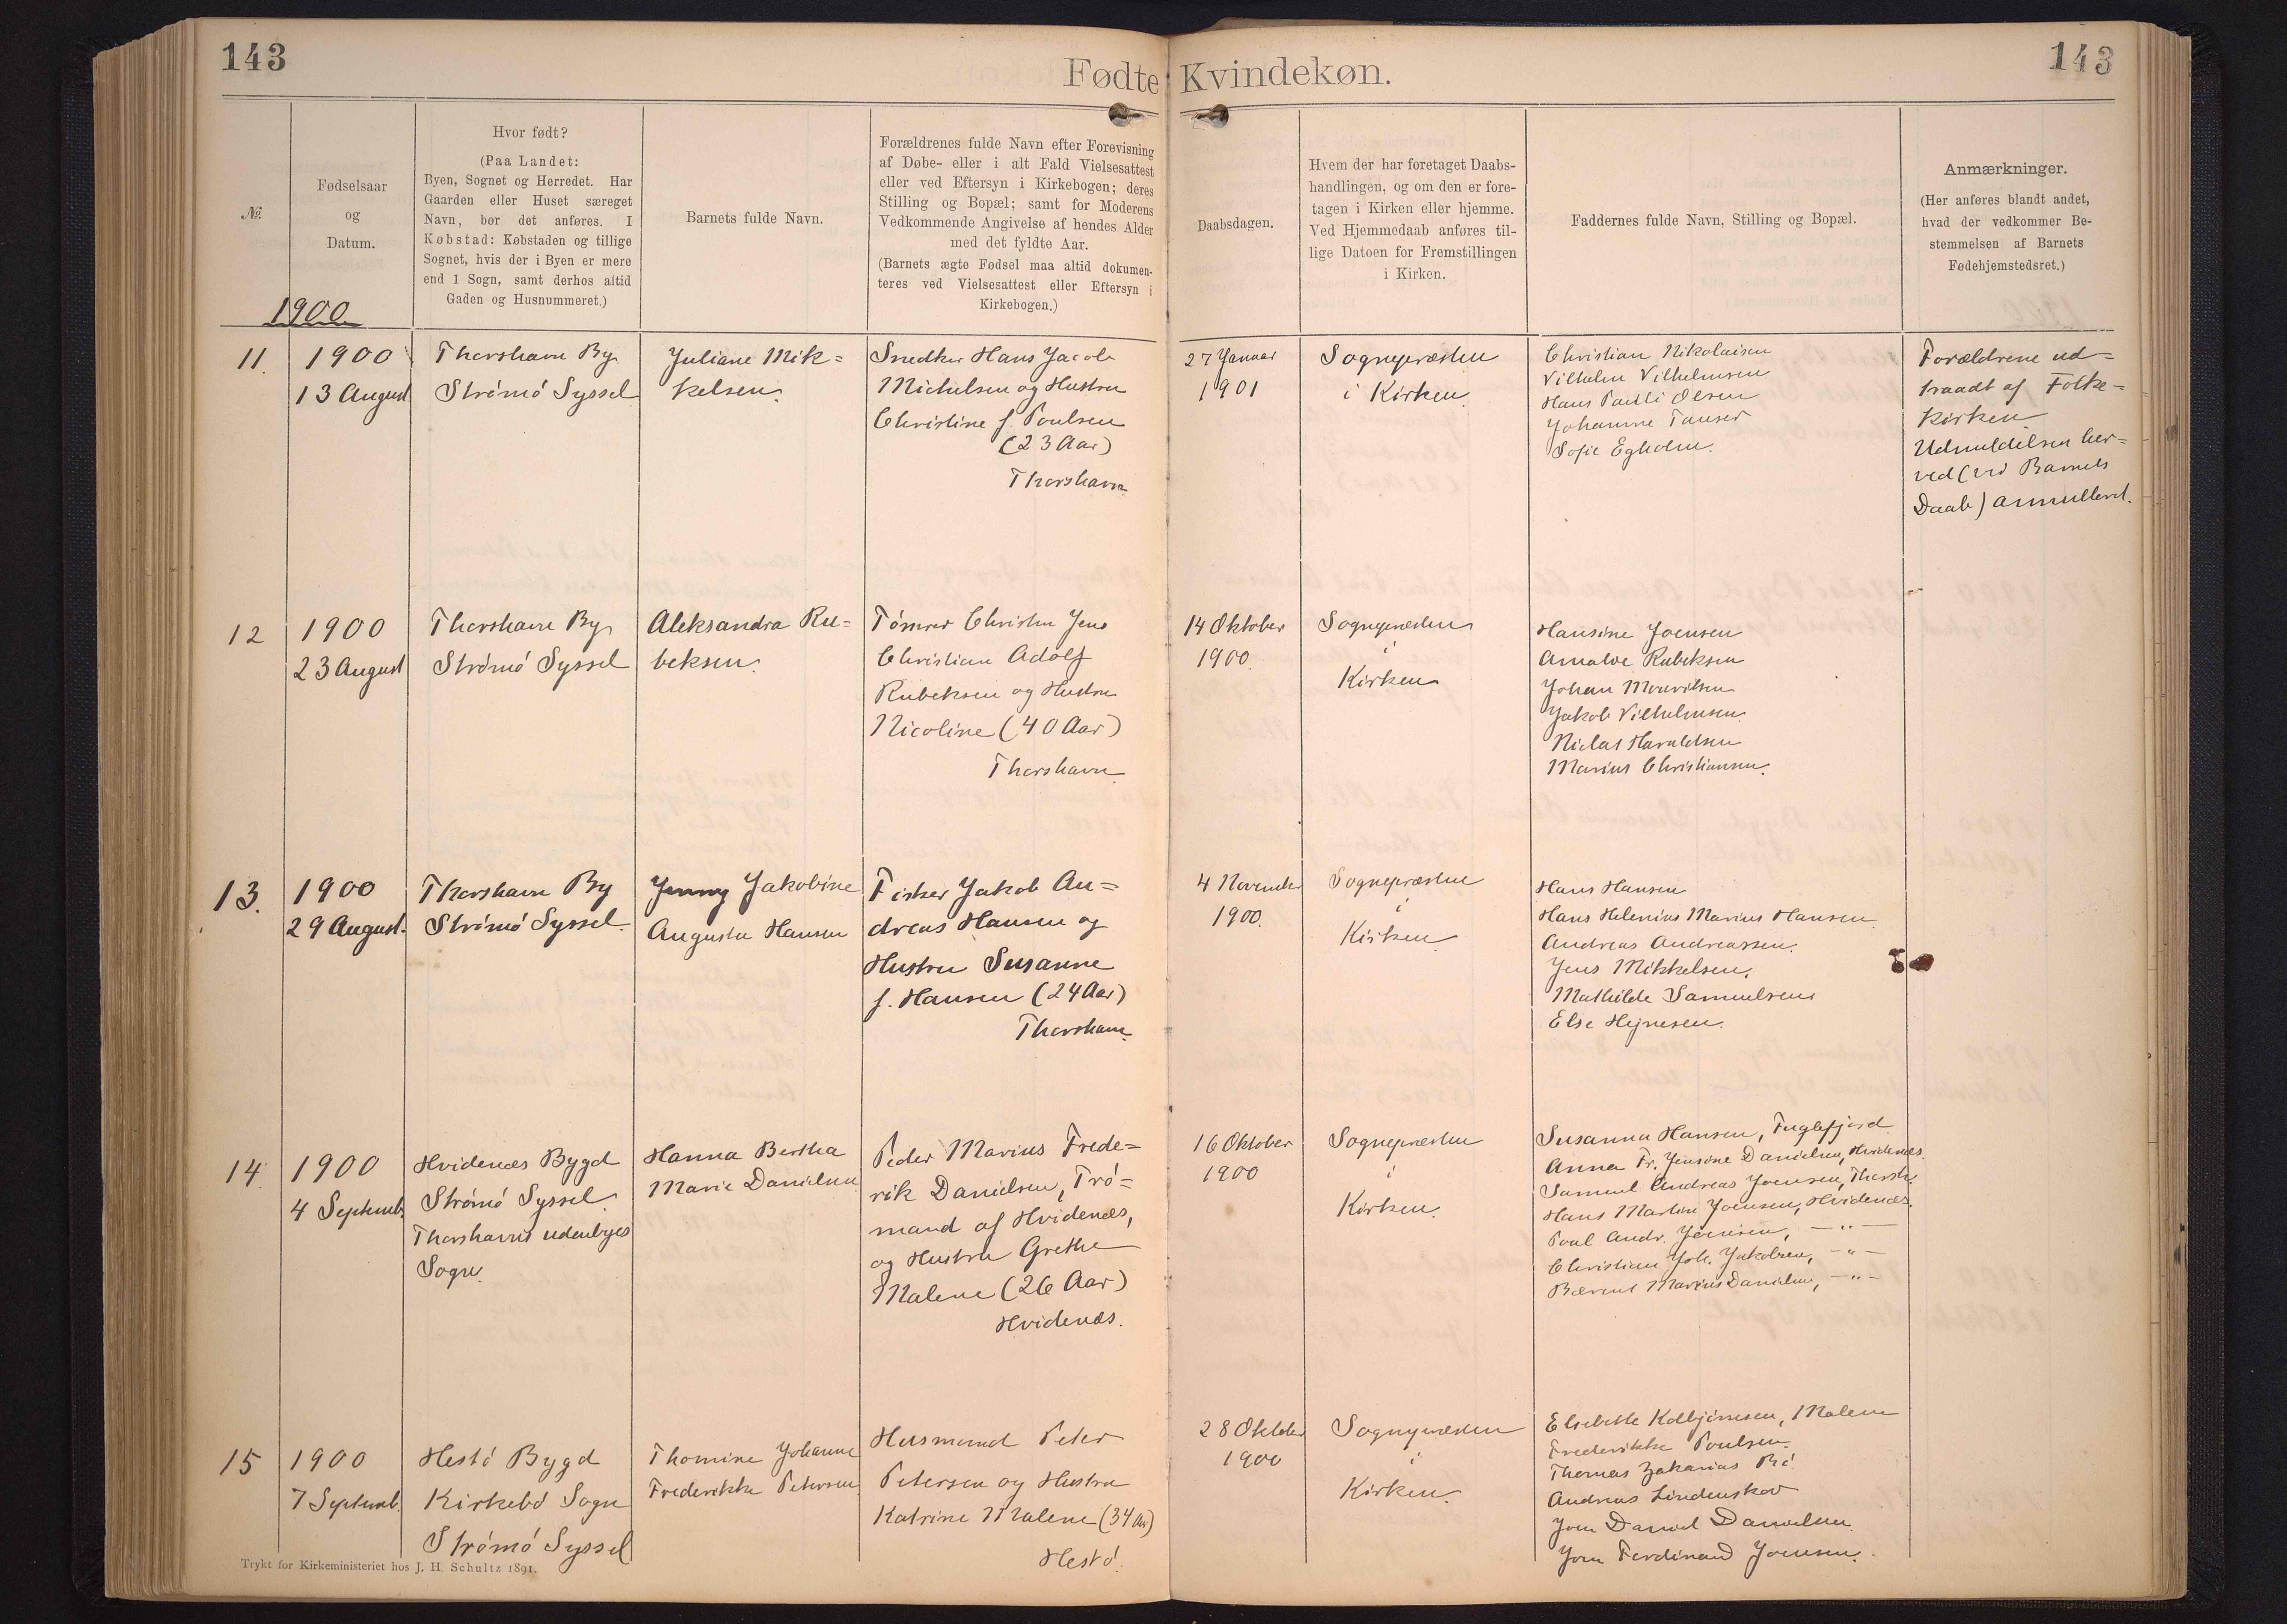 143
143
Fødte Kvindekøn.
№
Fødselsaar
og
Datum.
Hvor født?
(Paa Landet:
Byen, Sognet og Herredet. Har
Gaarden eller Huset særeget
Navn, bør det anføres. I
Købstad: Købstaden og tillige
Sognet, hvis der i Byen er mere
end 1 Sogn, samt derhos altid
Gaden og Husnummeret.)
Barnets fulde Navn.
Forældrenes fulde Navn efter Forevisning
af Døbe- eller i alt Fald Vielsesattest
eller ved Eftersyn i Kirkebogen; deres
Stilling og Bopæl; samt for Moderens
Vedkommende Angivelse af hendes Alder
med det fyldte Aar.
(Barnets ægte Fødsel maa altid dokumen-
teres ved Vielsesattest eller Eftersyn i
Kirkebogen.)
Daabsdagen.
Hvem der har foretaget Daabs-
handlingen, og om den er fore-
tagen i Kirken eller hjemme.
Ved Hjemmedaab anføres til-
lige Datoen for Fremstillingen
i Kirken.
Faddernes fulde Navn, Stilling og Bopæl.
Anmærkninger.
(Her anføres blandt andet,
hvad der vedkommer Be-
stemmelsen af Barnets
Fødehjemstedsret.)
1900
11.
1900
13 August
Thorshavn By
Strømø Syssel
Juliane Mik=
kelsen.
Snedker Hans Jacob
Michelsen og Hustru
Christine f. Poulsen
(23 Aar)
Thorshavn
27 Januar
1901
Sognepræsten
i Kirken.
Christian Nikolaisen
Vilhelm Vilhelmsen
Hans Poulli Olsen
Johanne Tausen
Sofie Egholm.
Forældrene ud=
traadt af Folke=
kirken
Udmeldelsen her=
ved (ved Barnets
Daab) annulleret.
12
1900
23 August
Thorshavn By
Strømø Syssel
Aleksandra Ru=
beksen.
Tømrer Christen Jens
Christian Adolf
Rubeksen og Hustru
Nicoline (40 Aar)
Thorshavn
14 Oktober
1900.
Sognepræsten
i
Kirken
Hansine Joensen
Rubeksen
Johan Mouritsen
Jakob Vilhelmsen.
Niclas Haraldsen
Marius Christiansen.
13.
1900
29 August.
Thorshavn By
Strømø Syssel.
Jenny Jakobine
Augusta Hansen
Fisker Jakob An=
dreas Hansen og
Hustru Susanne
f. Hansen (24 Aar)
Thorshavn.
4 November
1900.
Sognepræsten
i
Kirken
Hans Hansen
Hans Helenius Marius Hansen
Andreas Andreassen.
Jens Mikkelsen.
Mathilde Samuelsen
Else Hejnesen.
14.
1900
4 Septemb.
Hvidenæs Bygd
Strømø Syssel.
Thorshavns udenbyes
Sogn.
Hanna Bertha
Marie Danielsen
Peder Marius Frede=
rik Danielsen, Trø=
mand af Hvidenæs,
og Hustru Grethe
Malene (26 Aar)
Hvidenæs.
16 Oktober
1900
Sognepræsten
i
Kirken.
Susanna Hansen, Fuglefjord
Anna Fr. Jensine Danielsen, Hvidenæs.
Samuel Andreas Joensen, Thorsh.
Hans Martin Joensen, Hvidenæs.
Poul Andr. Joensen, — " —
Christian Joh. Jakobsen, — " —
Marius Danielsen, — " —
15
1900
7 Septemb.
Hestø Bygd
Kirkebø Sogn
Strømø Syssel
Thomine Johanne
Frederikke Petersen
Husmand Peter
Petersen og Hustru
Katrine Malene (34 Aar)
Hestø.
28 Oktober
1900
Sognepræsten
i
Kirken.
Elsebeth Kolbjørnsen, Malene
Frederikke Poulsen.
Thomas Zakarias
Andreas Lindenskov
Joen Daniel Danielsen.
Joen Ferdinand Joensen.
Trykt for Kirkeministeriet hos J. H. Schultz 1891.